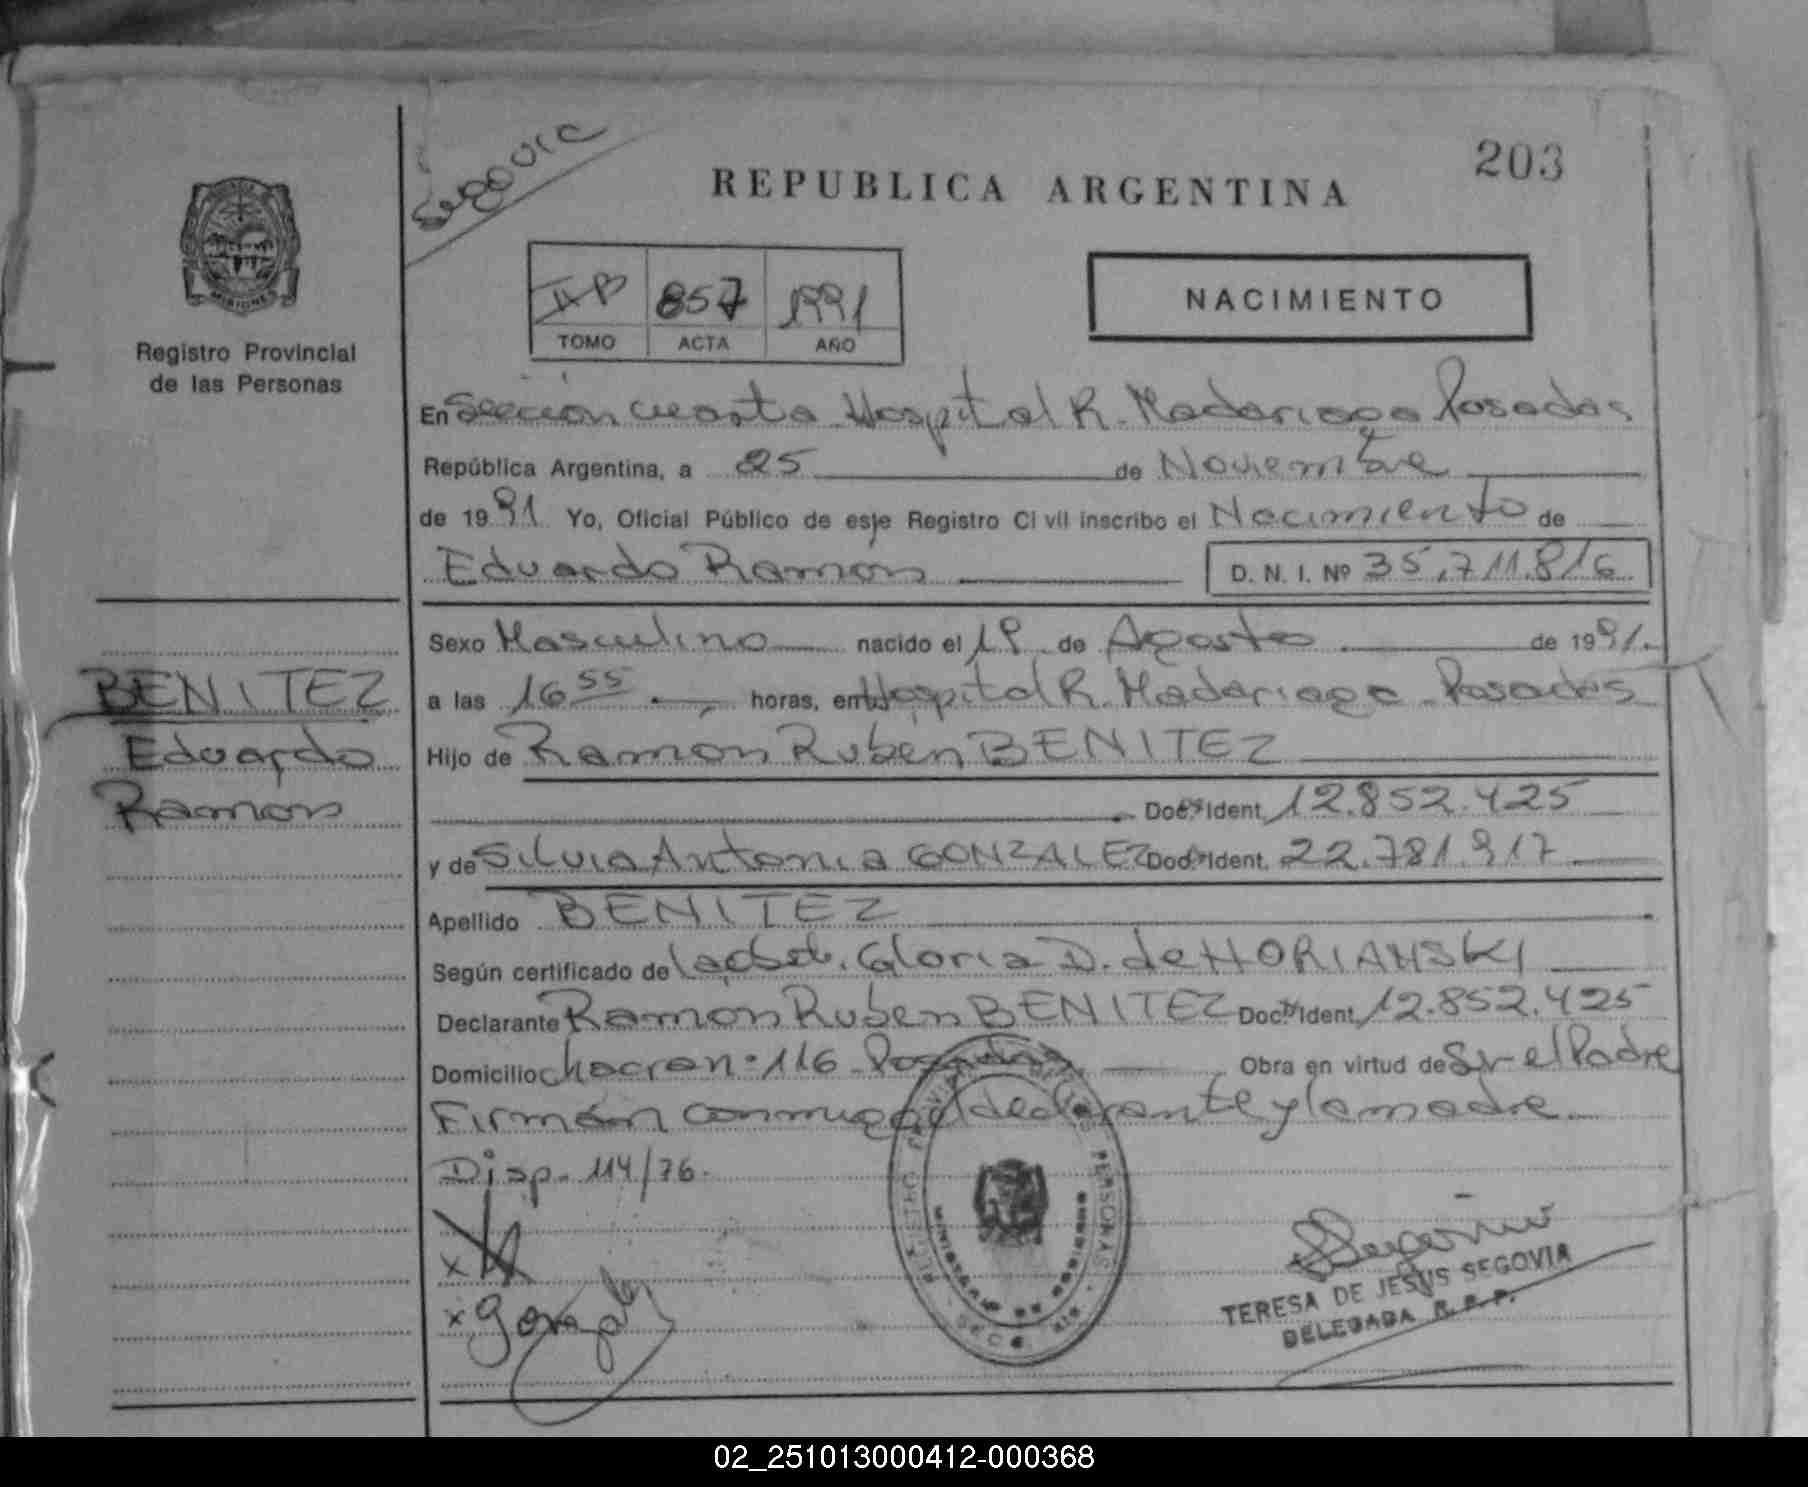 Segovia
203
REPUBLICA ARGENTINA
MISIONES
Registro Provincial
de las Personas
857 1991
TOMO ACTA AÑO
NACIMIENTO
En Sección cuarta Hospital R. Madariaga Posadas
República Argentina, a 25 de Noviembre
de 1991 Yo, Oficial Público de este Registro Civil inscribo el Nacimiento de
Eduardo Ramón D. N. I. Nº 35.711.816
Sexo Masculino nacido el 19 de Agosto de 1991.
a las 16 55 horas, en Hospital R. Madariaga - Posadas
Hijo de Ramón Rubén BENITEZ
Doc. Ident. 12.852.425
y de Silvia Antonia GONZALEZ Doc. Ident. 22.781.917
Apellido BENITEZ
Según certificado de la obst. Gloria D. de HORIANSKI
Declarante Ramón Rubén BENITEZ Doc. Ident. 12.852.425
Domicilio chacra n: 116 - Posadas Obra en virtud de Sr el Padre
Firmán conmigo el declarante y la madre.
Disp. 114/76.
BENITEZ
Eduardo
Ramón
x
x Gonzalez
REGISTRO PROVINCIAL DE LAS PERSONAS
MINISTERIO DE GOBIERNO
TERESA DE JESUS SEGOVIA
DELEGADA R. P. P.
02_251013000412-000368